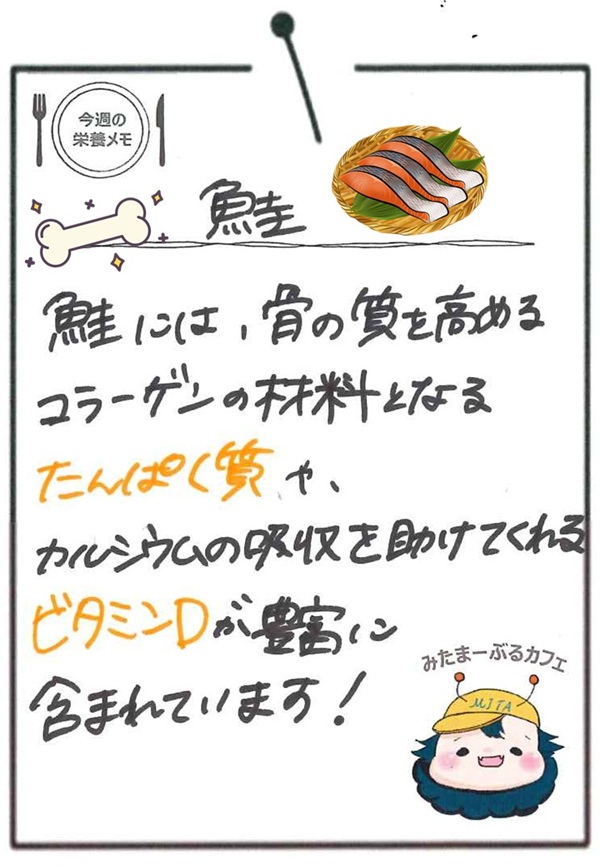 今週の
栄養メモ
鮭
鮭には、骨の質を高める
コラーゲンの材料となる
たんぱく質や、
カルシウムの吸収を助けてくれる
ビタミンDが豊富に
含まれています!
みたまーぶるカフェ
MITA